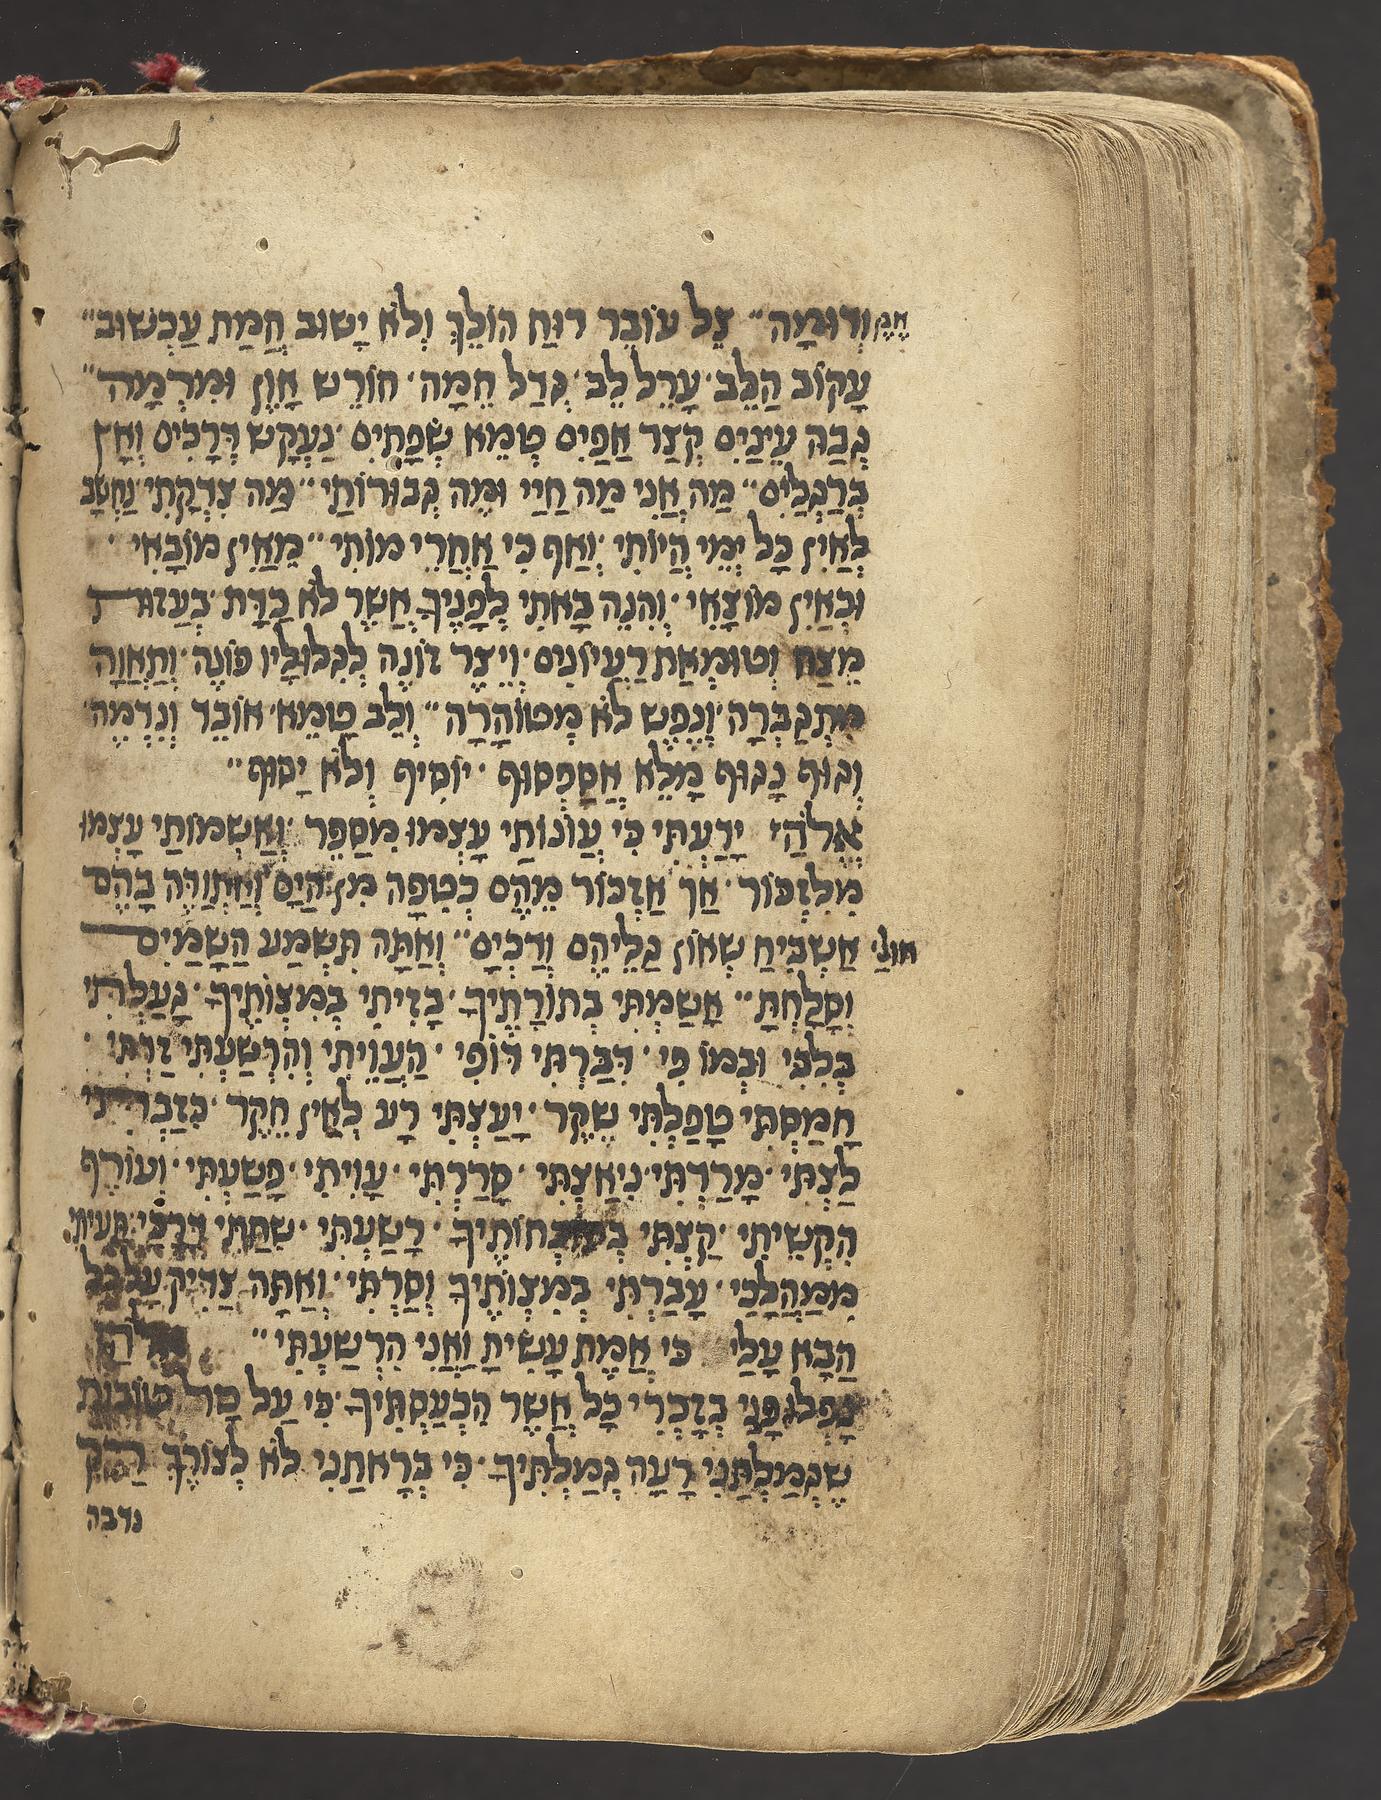 אכן וְדוּמָה״ צֵל עוֹבֵר רוּחַ הוֹלֵךְ וְלֹא יָשׁוּב חֲמַת עַכְשׁוּב״
עָקוֹב הַלֵּב ׳ עָרֵל לֵב ׳ גְּדַל חֵמָה ׳ חוֹרֵשׁ אָוֶן וּמִרְמָה״
גְּבַהּ עֵינַיִם קְצַר אַפַּיִם טְמֵא שְׂפָתַיִם ׳ נֶעְקַשׁ דְּרָכִים וְאָץ
בְּרַגְלַיִם״ מָה אֲנִי מַה חַיַּי וּמַה גְּבוּרוֹתַי״ מַה צִּדְקָתִי ׳ נֶחְשָׁב
לְאַיִן כָּל יְמֵי הֱיוֹתִי ׳ וְאַף כִּי אַחֲרֵי מוֹתִי״ מֵאַיִן מוֹבָאִי ׳
וּבְאַיִן מוֹצָאִי ׳ וְהִנֵּה בָּאתִי לְפָנֶיךָ אֲשֶׁר לֹא כַדָּת ׳ בְּעַזּוּת
מֵצַח וְטוּמְאַת רַעֲיוֹנִים ׳ וְיֵצֶר זוֹנֶה לְגִלּוּלָיו פּוֹנֶה ׳ וְתַאֲוָה
מִתְגַּבְּרָה ׳ וְנֶפֶשׁ לֹא מְטוֹהָרָה״ וְלֵב טָמֵא ׳ אוֹבֵד וְנִדְמֶה ׳
וְגוּף נָגוּף מָלֵא אֲסַפְסוּף ׳ יוֹסִיף וְלֹא יָסוּף״
אֱלֹהַי יָדַעְתִּי כִּי עֲוֹנוֹתַי עָצְמוּ מִסַּפֵּר ׳ וְאַשְׁמוֹתַי עָצְמוּ
מִלִּזְכּוֹר ׳ אַךְ אַזְכּוֹר מֵהֶם כְּטִפָּה מִן הַיָּם וְאֶתְוַדֶּה בָּהֶם
אולי אַשְׁבִּיחַ שְׁאוֹן גַּלֵּיהֶם וְדָכְיָם״ וְאַתָּה תִּשְׁמַע הַשָּׁמַיִם
וְסָלַחְתָּ״ אָשַׁמְתִּי בְּתוֹרָתֶיךָ ׳ בָּזִיתִי בְּמִצְוֹתֶיךָ ׳ גָּעַלְתִּי
בְּלִבִּי וּבְמוֹ פִי ׳ דִּבַּרְתִּי דּוֹפִי ׳ הֶעֱוֵיתִי וְהִרְשַׁעְתִּי זַדְתִּי ׳
חָמַסְתִּי טָפַלְתִּי שֶׁקֶר ׳ יָעַצְתִּי רָע לְאֵין חֵקֶר ׳ כִּזַּבְתִּי
לַצְתִּי ׳ מָרַדְתִּי ׳ נִיאַצְתִּי ׳ סָרַרְתִּי ׳ עָוִיתִי ׳ פָּשַׁעְתִּי ׳ וְעוֹרֶף
הִקְשֵׁיתִי ׳ קַצְתִּי בְּתוֹכְחוֹתֶיךָ ׳ רָשַׁעְתִּי ׳ שִׁחַתִּי דְּרָכַי ׳ תָּעִיתִי
מִמַּהֲלָכַי ׳ עָבַרְתִּי בְּמִצְוֹתֶיךָ וְסַרְתִּי ׳ וְאַתָּה צַדִּיק עַל כָּל
הַבָּא עָלַי כִּי אֱמֶת עָשִׂיתָ וַאֲנִי הִרְשַׁעְתִּי״ אלהי
נָפְלוּ פָנַי בְּזָכְרִי כָּל אֲשֶׁר הִכְעַסְתִּיךָ ׳ כִּי עַל כָּל טוֹבוֹת
שֶׁגְּמַלְתַּנִי רָעָה גְּמַלְתִּיךָ ׳ כִּי בְּרָאתַנִי לֹא לְצוֹרֶךְ רַק
נדבה